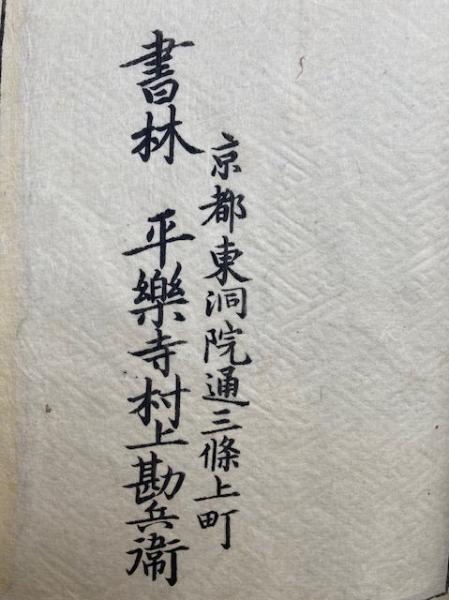 京都東洞院通三條上町
書林 平樂寺村上勘兵衞